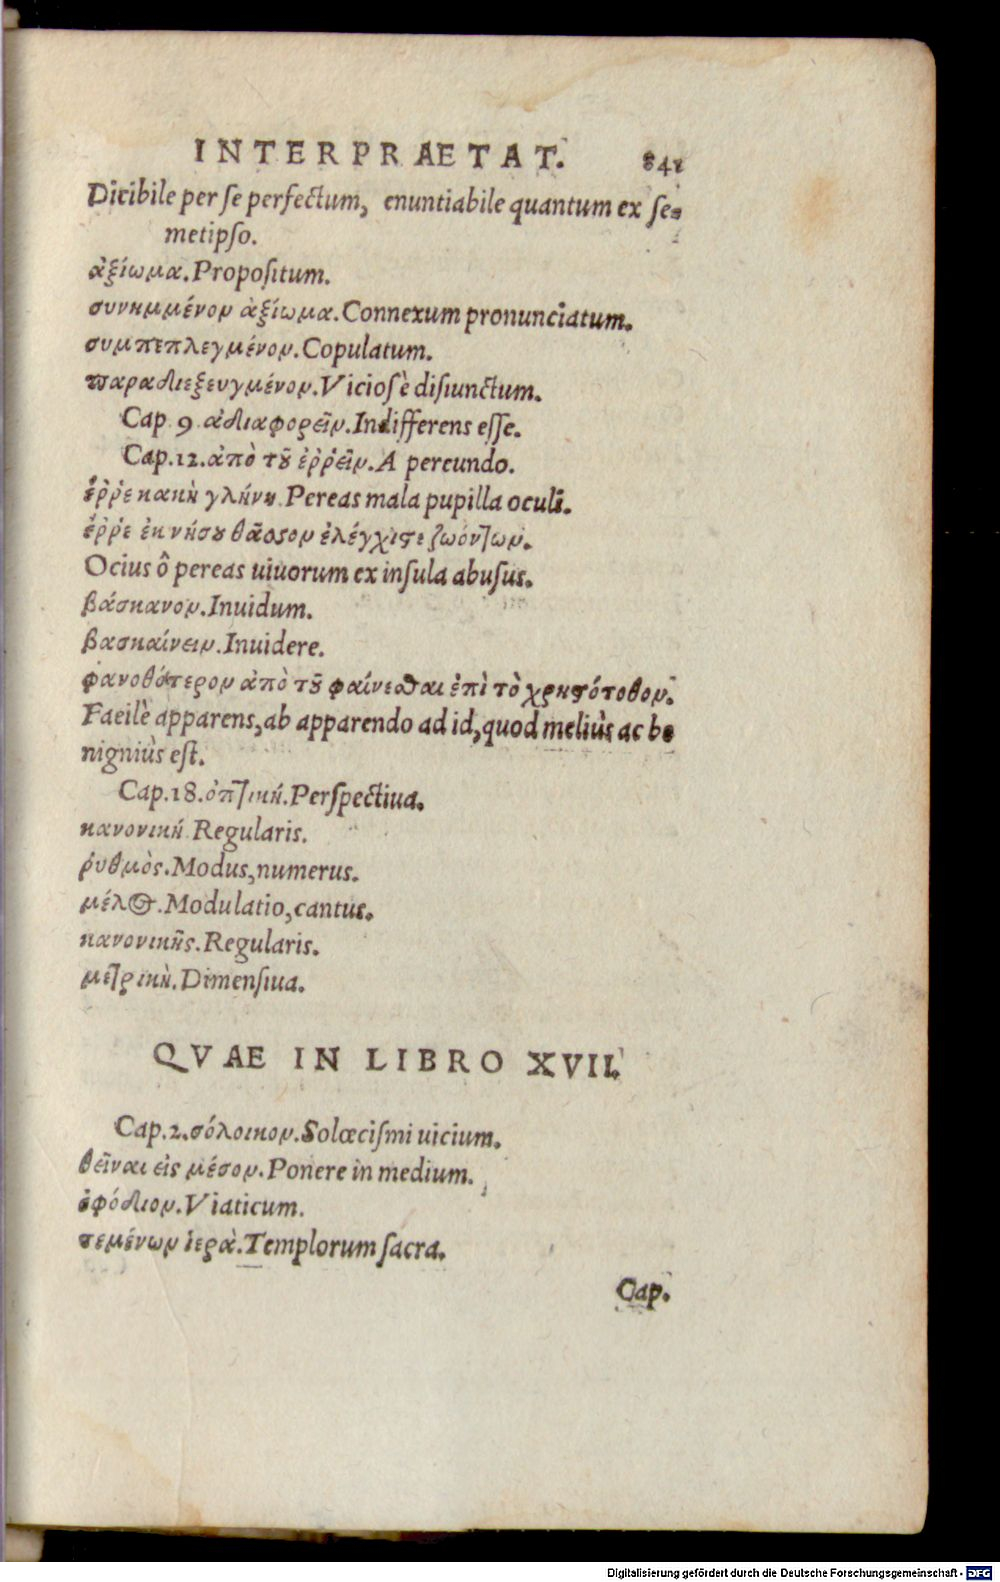 INTERPRAETAT. 841
Dicibile per se perfectum, enuntiabile quantum ex se-
metipso.
ἀξίωμα. Propositum.
συνημμένον ἀξίωμα. Connexum pronunciatum.
συμπεπλεγμένον. Copulatum.
παραδιεξευγμένον. Viciosè disiunctum.
Cap. 9. ἀδιαφορεῖν. Indifferens esse.
Cap. 12. ἀπὸ τοῦ ἐῤῥεῖν. A pereundo.
ἔῤῥε κακὴ γλήνη. Pereas mala pupilla oculi.
ἔῤῥε ἐκ νήσου θᾶσσον ἐλέγχιστε ζωόντων.
Ocius ô pereas uiuorum ex insula abusus.
βάσκανον. Inuidum.
βασκαίνειν. Inuidere.
φανοθότερον ἀπὸ τοῦ φαίνεσθαι ἐπὶ τὸ χρηστότοθον.
Facilè apparens, ab apparendo ad id, quod meliùs ac be
nigniùs est.
Cap. 18. ὀπτική. Perspectiua.
κανονική. Regularis.
ῥυθμὸς. Modus, numerus.
μέλος. Modulatio, cantus.
κανονικῆς. Regularis.
μετρικὴ. Dimensiua.
QVAE IN LIBRO XVII.
Cap. 2. σόλοικον. Solœcismi uicium.
θεῖναι εἰς μέσον. Ponere in medium.
ἐφόδιον. Viaticum.
τεμένων ἱερὰ. Templorum sacra.
Cap.
Digitalisierung gefördert durch die Deutsche Forschungsgemeinschaft - DFG